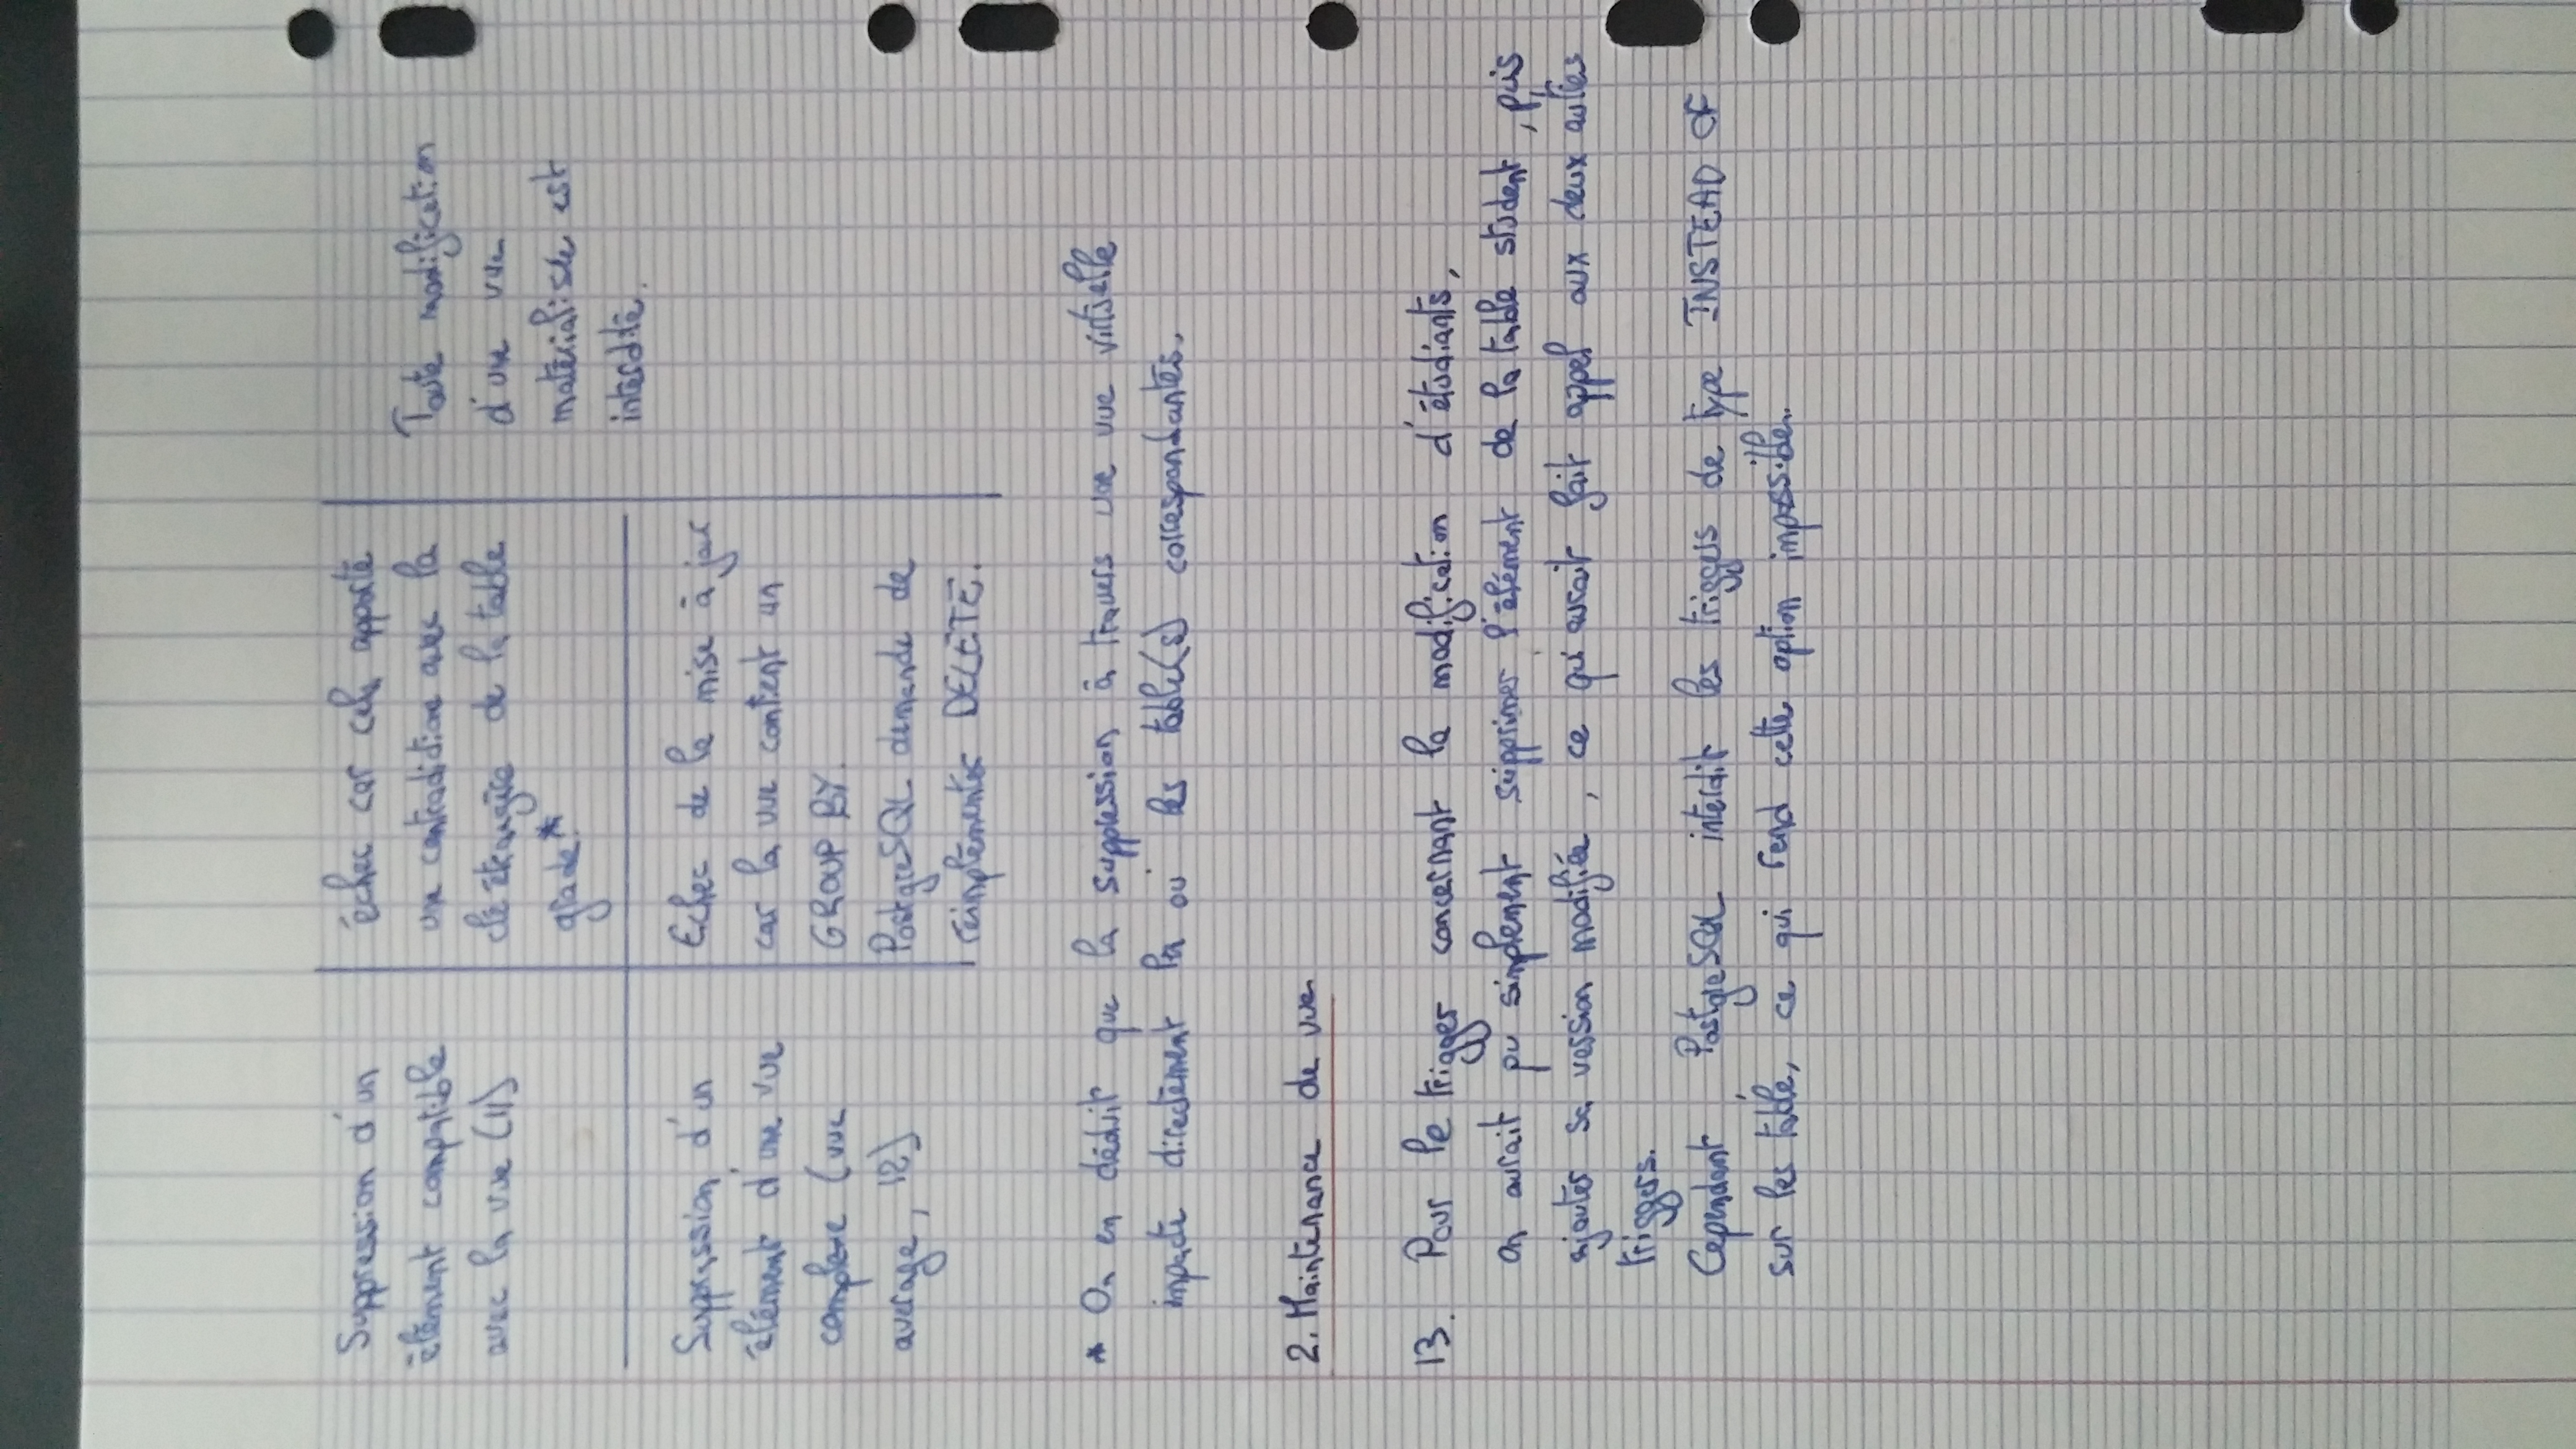 Suppression d'un
élément compatible
avec la vue (11)
échec car cela apporte
une contradiction avec la
clé étrangère de la table
grade.*
Toute modification
d'une vue
matérialisée est
interdite.
Suppression d'un
élément d'une vue
complexe (vue
average, 12)
Echec de la mise à jour
car la vue contient un
GROUP BY.
PostgreSQL demande de
réimplémenter DELETE.
* On en déduit que la suppression à travers une vue virtuelle
impacte directement la ou les table(s) correspondantes.
2. Maintenance de vue
13. Pour le trigger concernant la modification d'étudiants,
on aurait pu simplement supprimer l'élément de la table student, puis
ajouter sa version modifiée, ce qui aurait fait appel aux deux autres
triggers.
Cependant, PostgreSQL interdit les triggers de type INSTEAD OF
sur les table, ce qui rend cette option impossible.